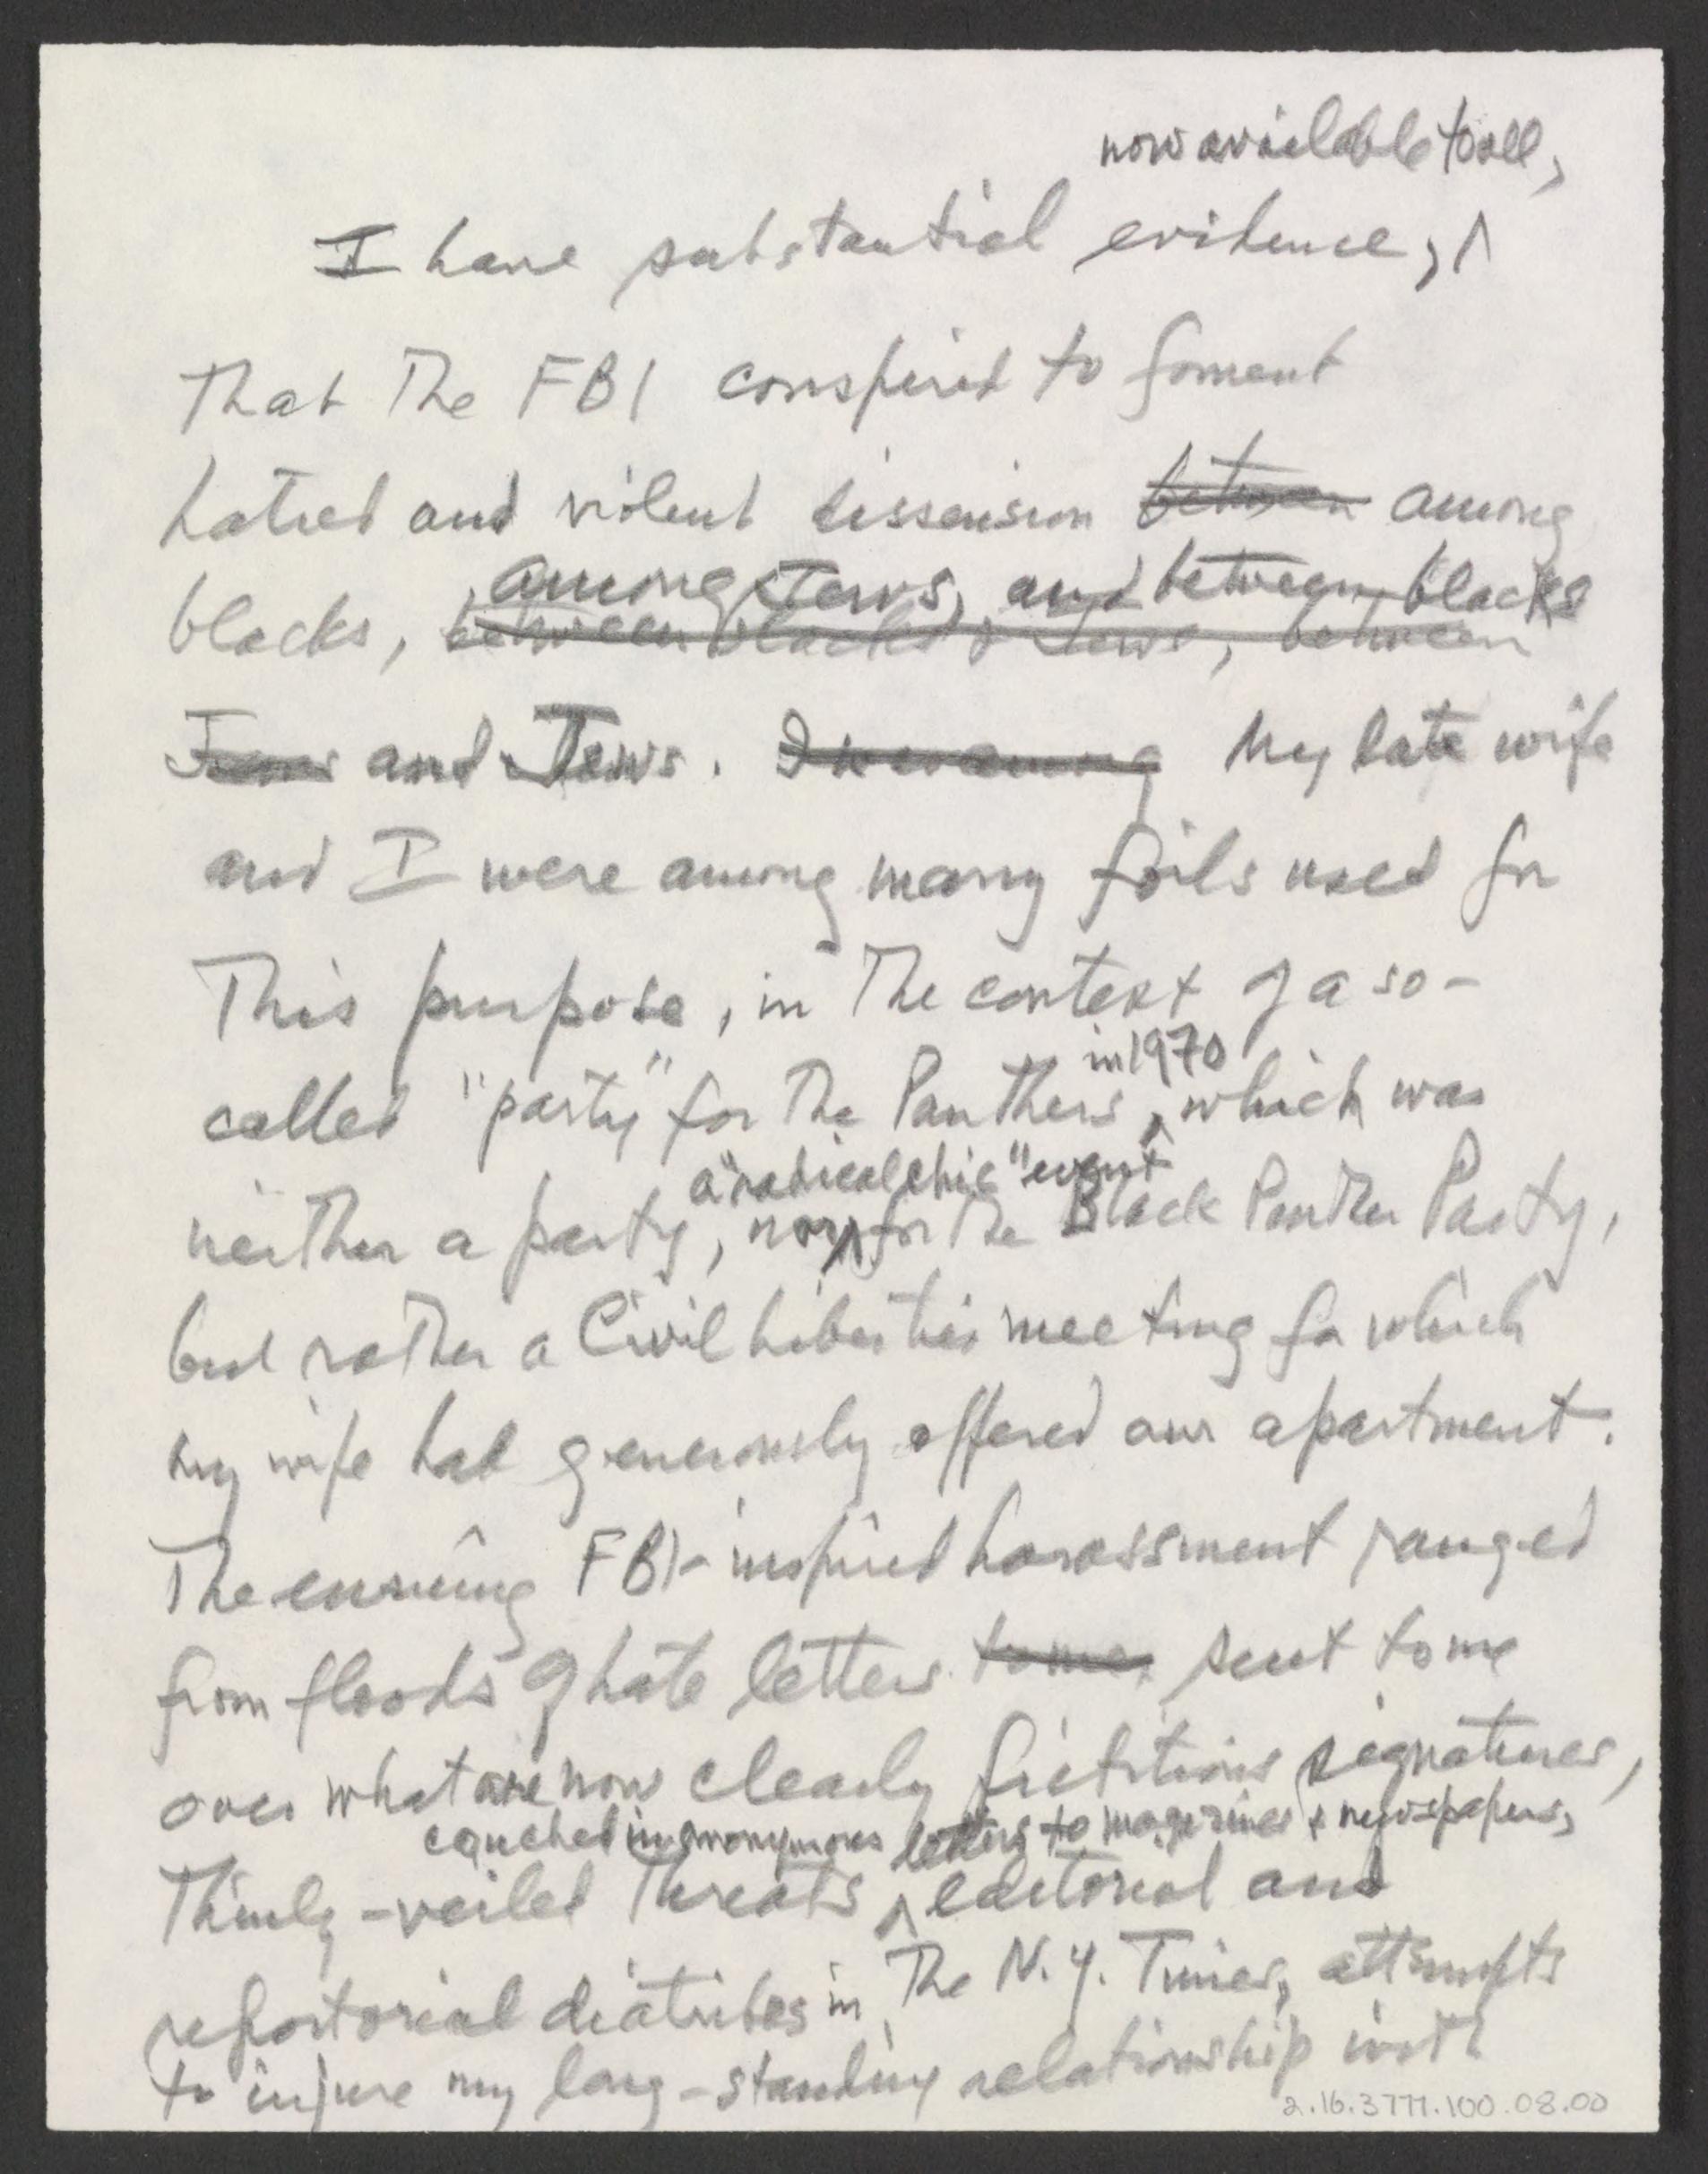 now available to all,
I have substantial evidence, ^
that the FBI conspired to foment
hatred and violent dissension between among
among Jews, and between blacks
blacks, between blacks & Jews, between
Jews and Jews. My late wife
and I were among many foils used for
this purpose, in the context of a so-
in 1970
called "party" for the Panthers ^ which was
a "radical chic" event
neither a party, nor ^ for the Black Panther Party,
but rather a Civil Liberties meeting for which
my wife had generously offered our apartment.
The ensuing FBI-inspired harassment ranged
from floods of hate letters to me, sent to me
over what are now clearly fictitious signatures,
couched in anonymous letters to magazines & newspapers,
thinly-veiled threats ^ editorial and
reportorial diatribes in The N.Y. Times, attempts
to injure my long-standing relationship with
2.16.3777.100.08.00